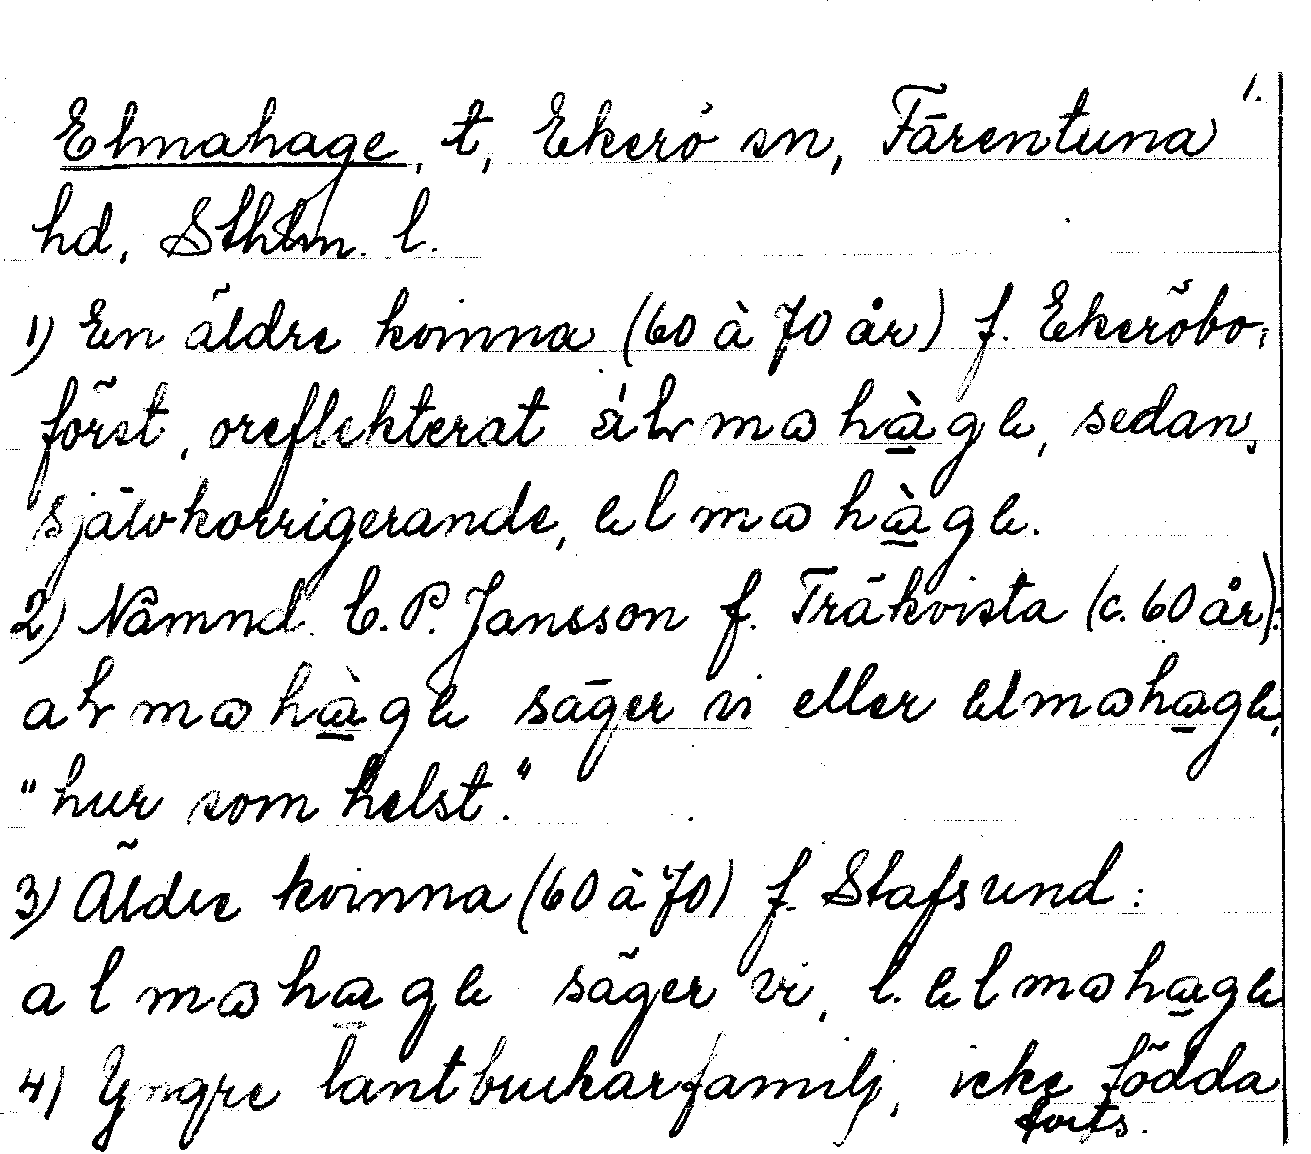 1.
Elmahage, t, Ekerö sn, Färentuna
hd, Sthlm. l.
1) En äldre kvinna (60 à 70 år) f. Ekeröbo,
först, oreflekterat mahàge, sedan,
självkorrigerande, elmahàge.
2) Nämnd. C.P. Jansson f. Träkvista (c. 60 år):
almahàge säger vi eller elmahage,
"hur som helst."
3) Äldre kvinna (60 à 70) f. Stafsund:
almahage säger vi, l. elmahage
4) Yngre lantbrukarfamilj, icke födda
forts.